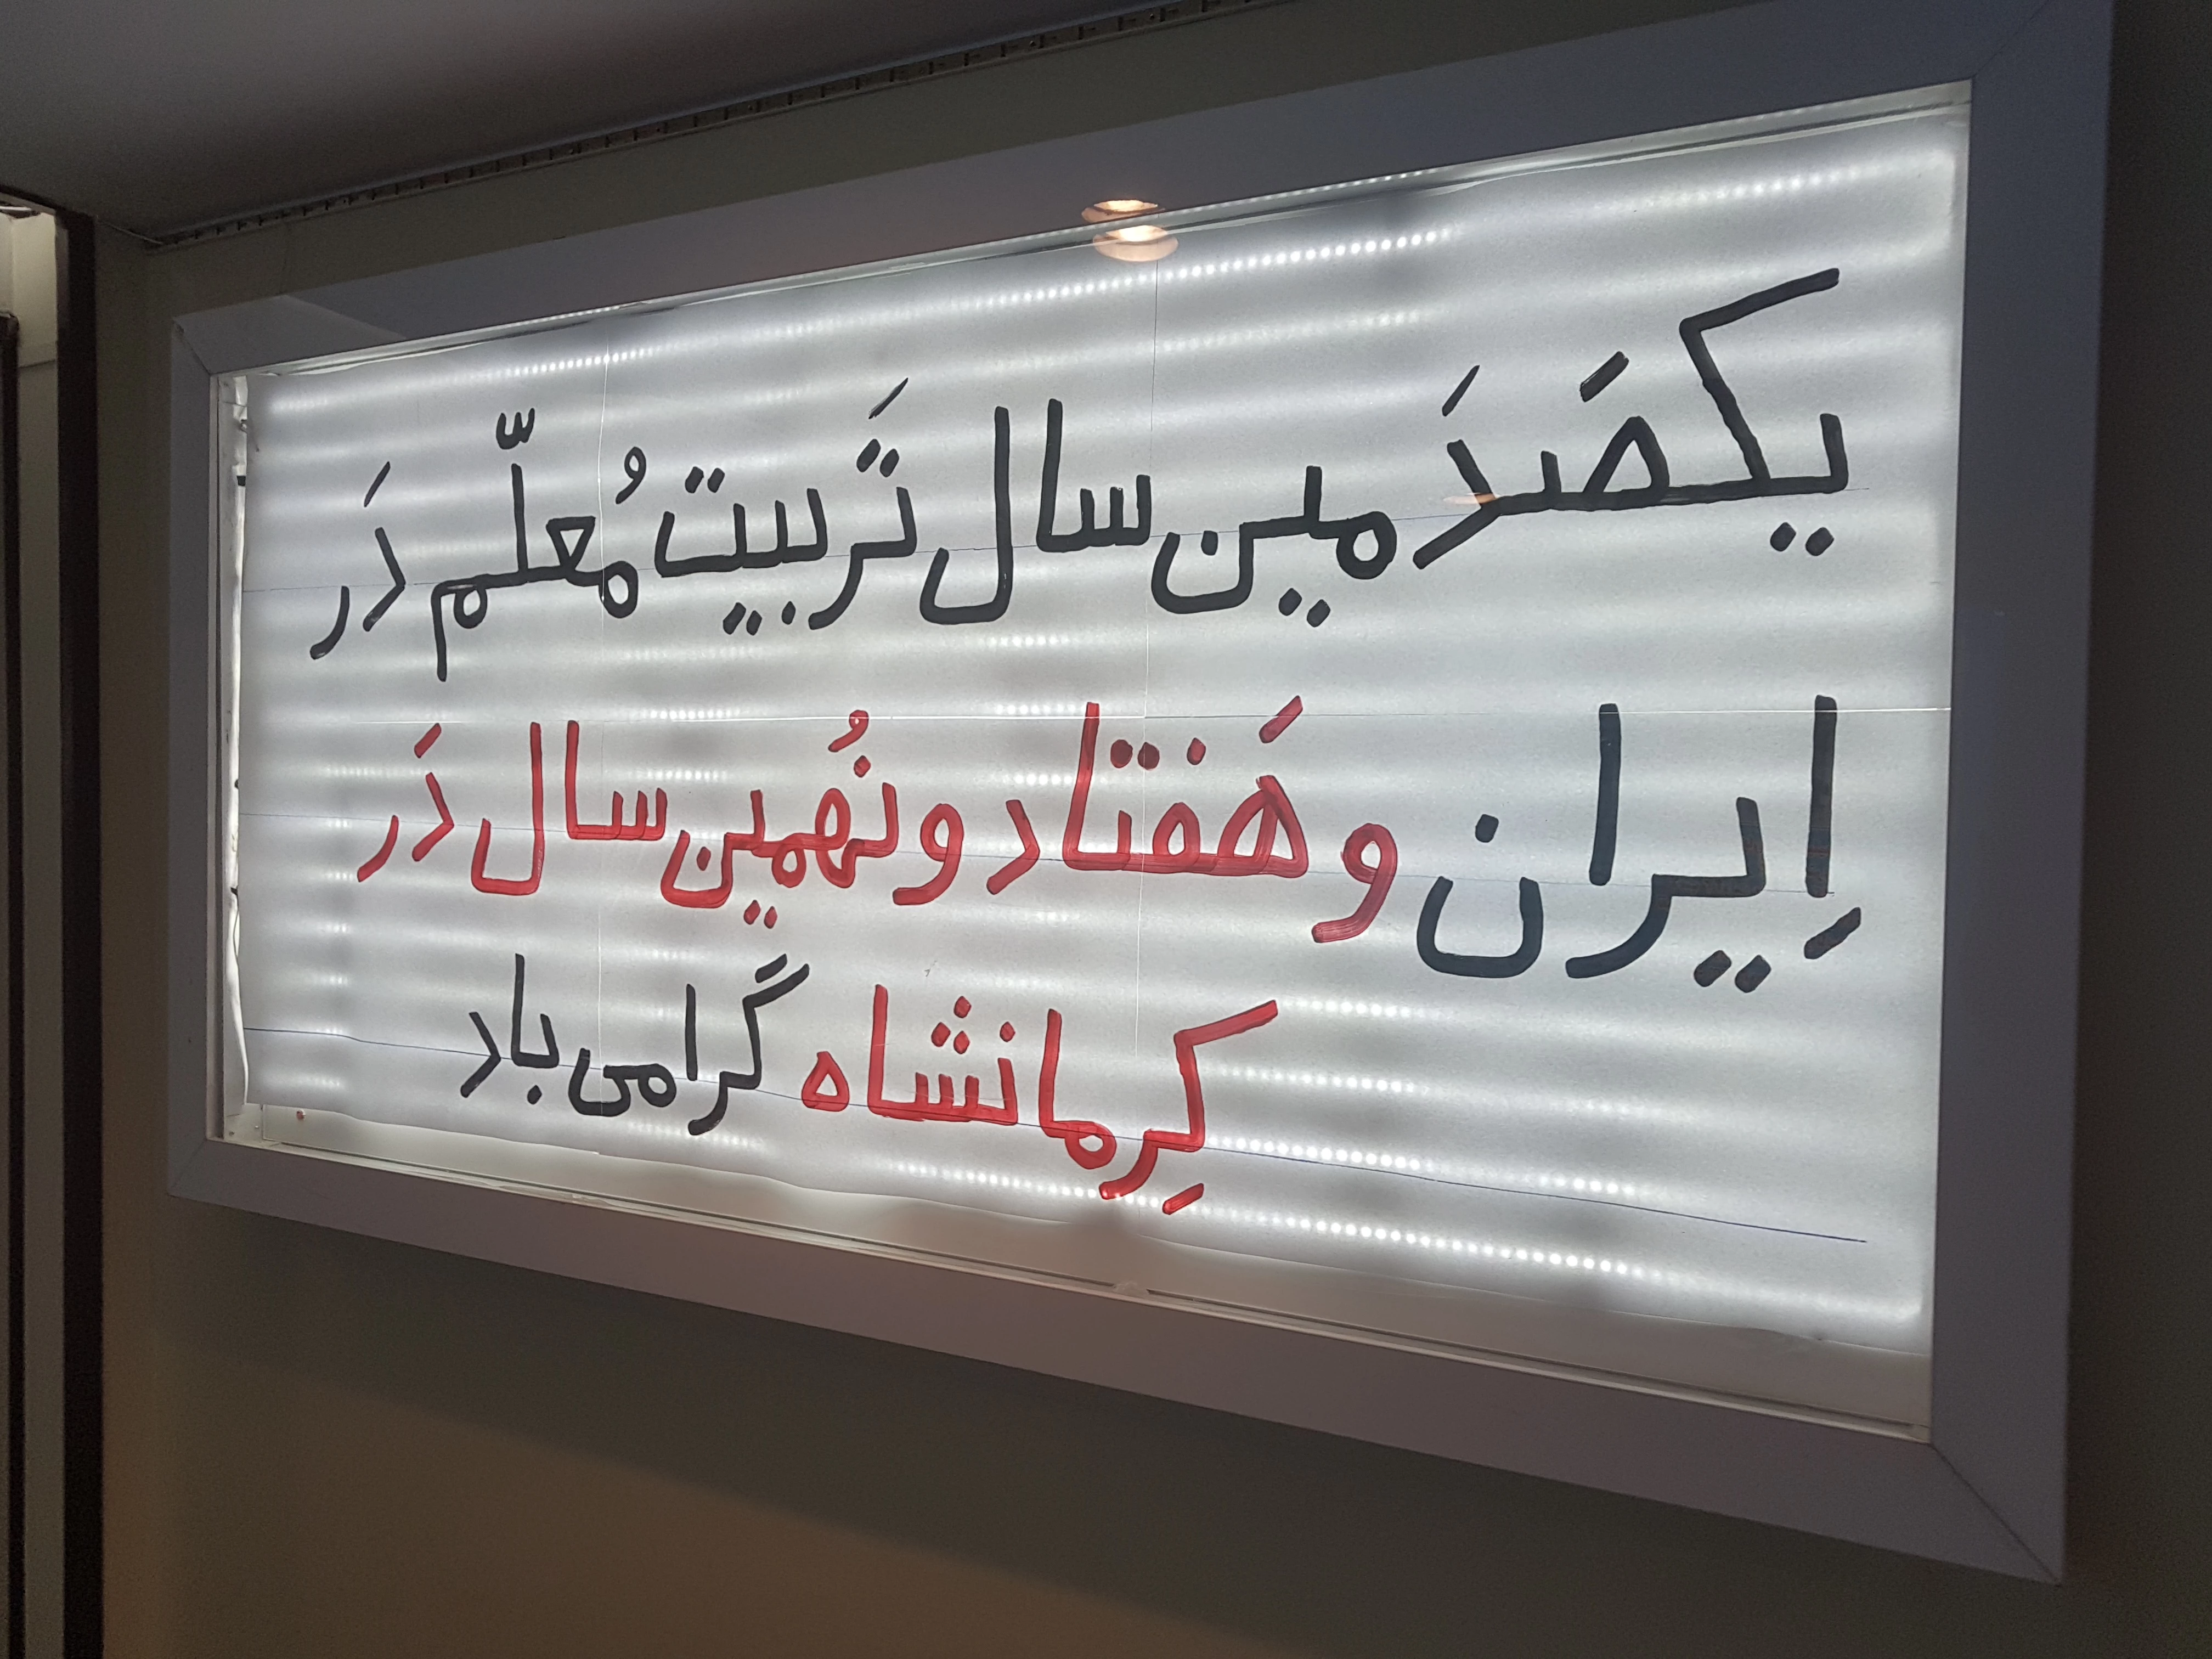 یکصَدَمین سال تَربیت مُعلّم دَر
اِیران و هَفتاد و نُهمین سال دَر
کِرمانشاه گرامی باد